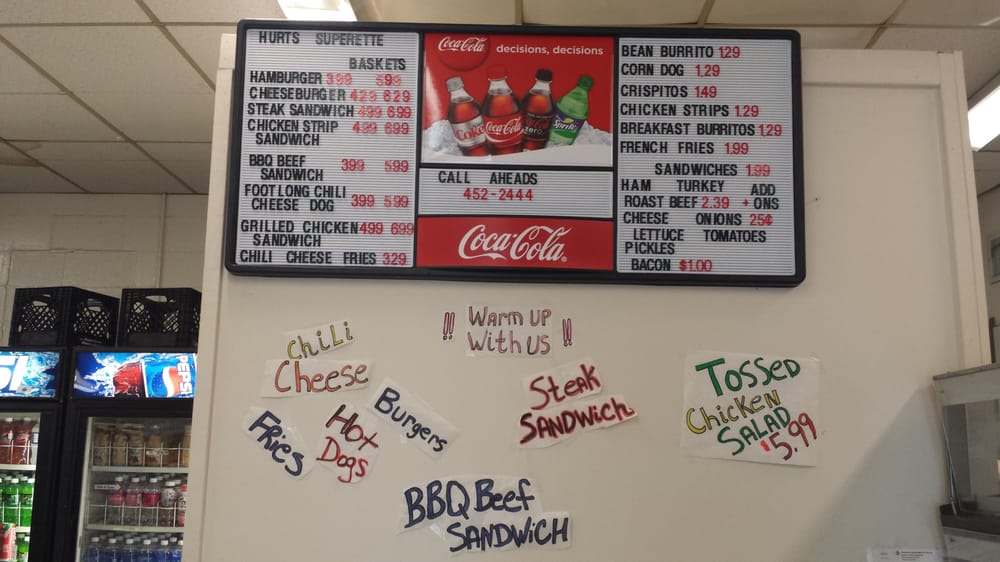 HURTS SUPERETTE
BASKETS
HAMBURGER 399 599
CHEESEBURGER 429 629
STEAK SANDWICH 499 699
CHICKEN STRIP 499 699
SANDWICH
BBQ BEEF 399 599
SANDWICH
FOOT LONG CHILI
CHEESE DOG 399 599
GRILLED CHICKEN 499 699
SANDWICH
CHILI CHEESE FRIES 329
Coca-Cola decisions, decisions
Coke
Coca-Cola
zero
Sprite
CALL AHEADS
452-2444
Coca-Cola
BEAN BURRITO 129
CORN DOG 1.29
CRISPITOS 149
CHICKEN STRIPS 1.29
BREAKFAST BURRITOS 129
FRENCH FRIES 1.99
SANDWICHES 1.99
HAM TURKEY ADD
ROAST BEEF 2.39 + ONS
CHEESE ONIONS 25¢
LETTUCE TOMATOES
PICKLES
BACON $1.00
!! WARM UP !!
WITH US
CHiLi
CHEESE
FRiES
HOT
DOGS
BURGERS
STEAK
SANDWICH
TOSSED
CHICKEN
SALAD
$5.99
BBQ BEEF
SANDWiCH
PEPSI